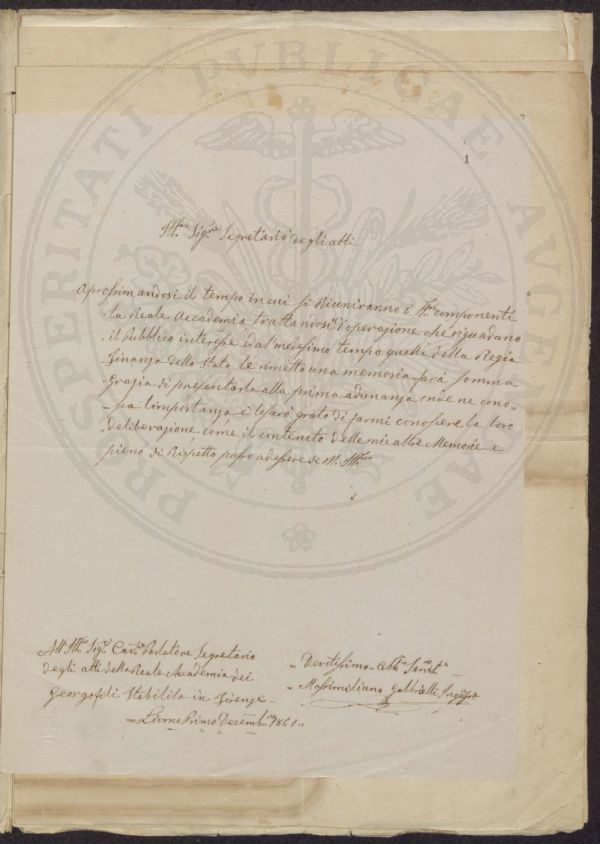 PROSPERITATI PVBLICAE AVGENDAE
1
Ill.mo Sig.re Segretario degli atti
Aprossimandosi il tempo in cui si Riuniranno i Sig.i componenti
la Reale Accademia trattandosi d'operazione che riguardano
il Pubblico interesse e al medesimo tempo quelli della Regia
Finanza dello Stato, le rimetto una memoria farà somma
grazia di presentarla alla prima adunanza onde ne cono=
=sca l'importanza e le sarò grato di farmi conoscere la loro
deliberazione, come il contenuto delle mie altre Memorie e
pieno di Rispetto passo ad essere di
All Ill.mo Sig.e Cav.e Parlatore Segretario
degli atti della Reale Accademia dei
Georgofili Stabilita in Firenze
= Devotissimo Obb.mo Serv.e
= Massimiliano Gabbrielli Ing.
= Livorno Primo Decembre 1861..